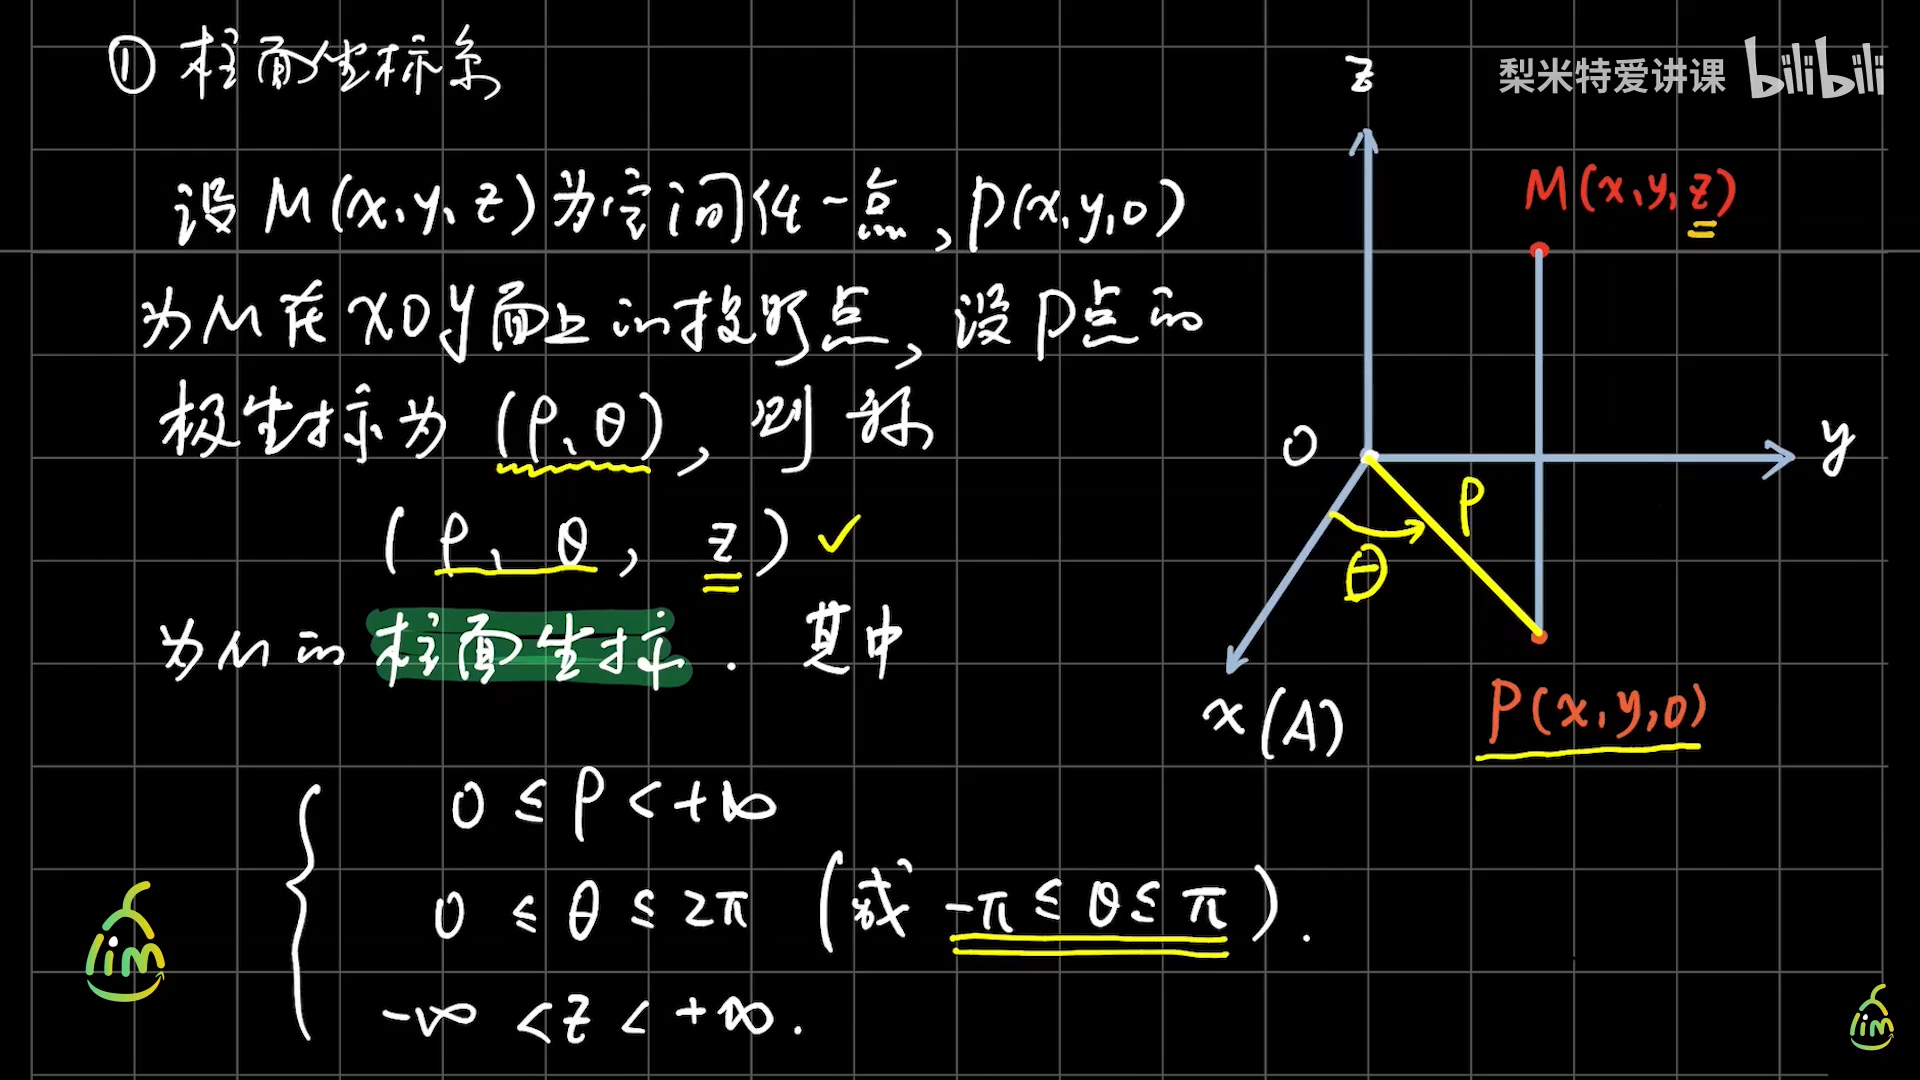 ① 柱面坐标系
设 M(x,y,z)为空间任一点,P(x,y,0)
为M在xOy面上的投影点,设P点的
极坐标为 (ρ,θ),则称
(ρ, θ, z)
为M的柱面坐标. 其中
0 ≤ ρ < +∞
0 ≤ θ ≤ 2π (或 -π ≤ θ ≤ π).
-∞ < z < +∞.
梨米特爱讲课 bilibili
z
M(x,y,z)
O
y
ρ
θ
x(A)
P(x,y,0)
lim
lim